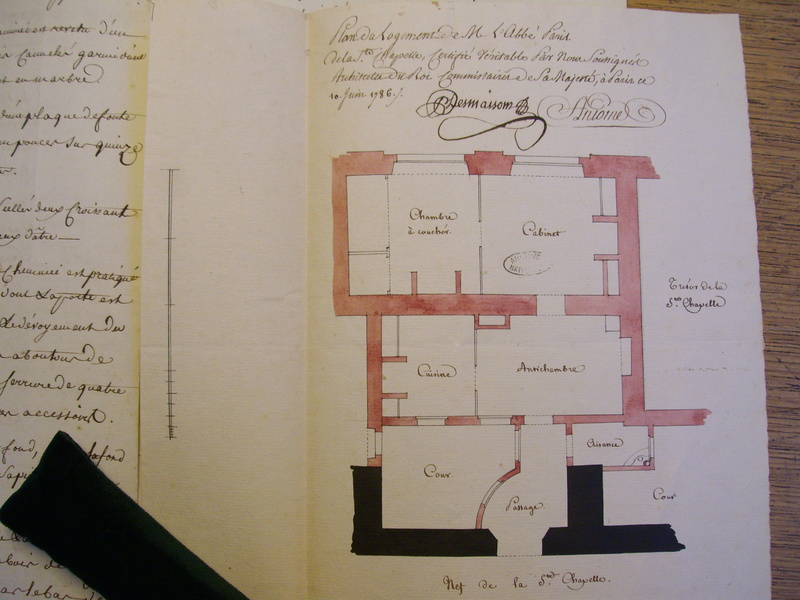 cannelé garni d'une
en marbre
plaque de fonte
pouces sur quinze
sceller deux Croissant
d'âtre
Cheminée est pratiqué
dont la porte est
dévoyement du
serrure de quatre
accessoires.
Plan du Logement de M. L'Abbé Paris
de la Ste. Chapelle, Certifié Véritable Par Nous Soussignés
Architectes Du Roi Commissaires de Sa Majesté, à Paris ce
10. Juin 1786./.
Desmaisons Antoine
Chambre
à coucher.
Cabinet
ARCHIVES
NATIONALES
Trésor de la
Ste Chapelle
Cuisine
Antichambre
Aisance
Cour
Passage
Cour
Nef de la Ste Chapelle.